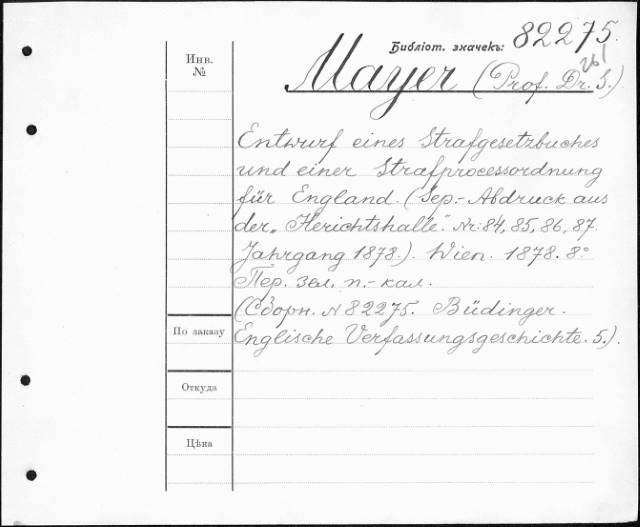 Библіот. значекъ: 82275.
261
Инв. №
Mayer (Prof. Dr. S.)
Entwurf eines Strafgesetzbuches
und einer Strafprocessordnung
für England. (Sep.-Abdruck aus
der „Herichtshalle". Nr: 84, 85, 86, 87.
Jahrgang 1878.). Wien. 1878. 8:°
Пер. зел. п.-кал.
(Сборн. N 82275. Büdinger.
По заказу
Englische Verfassungsgeschichte. 5.).
Откуда
Цѣна